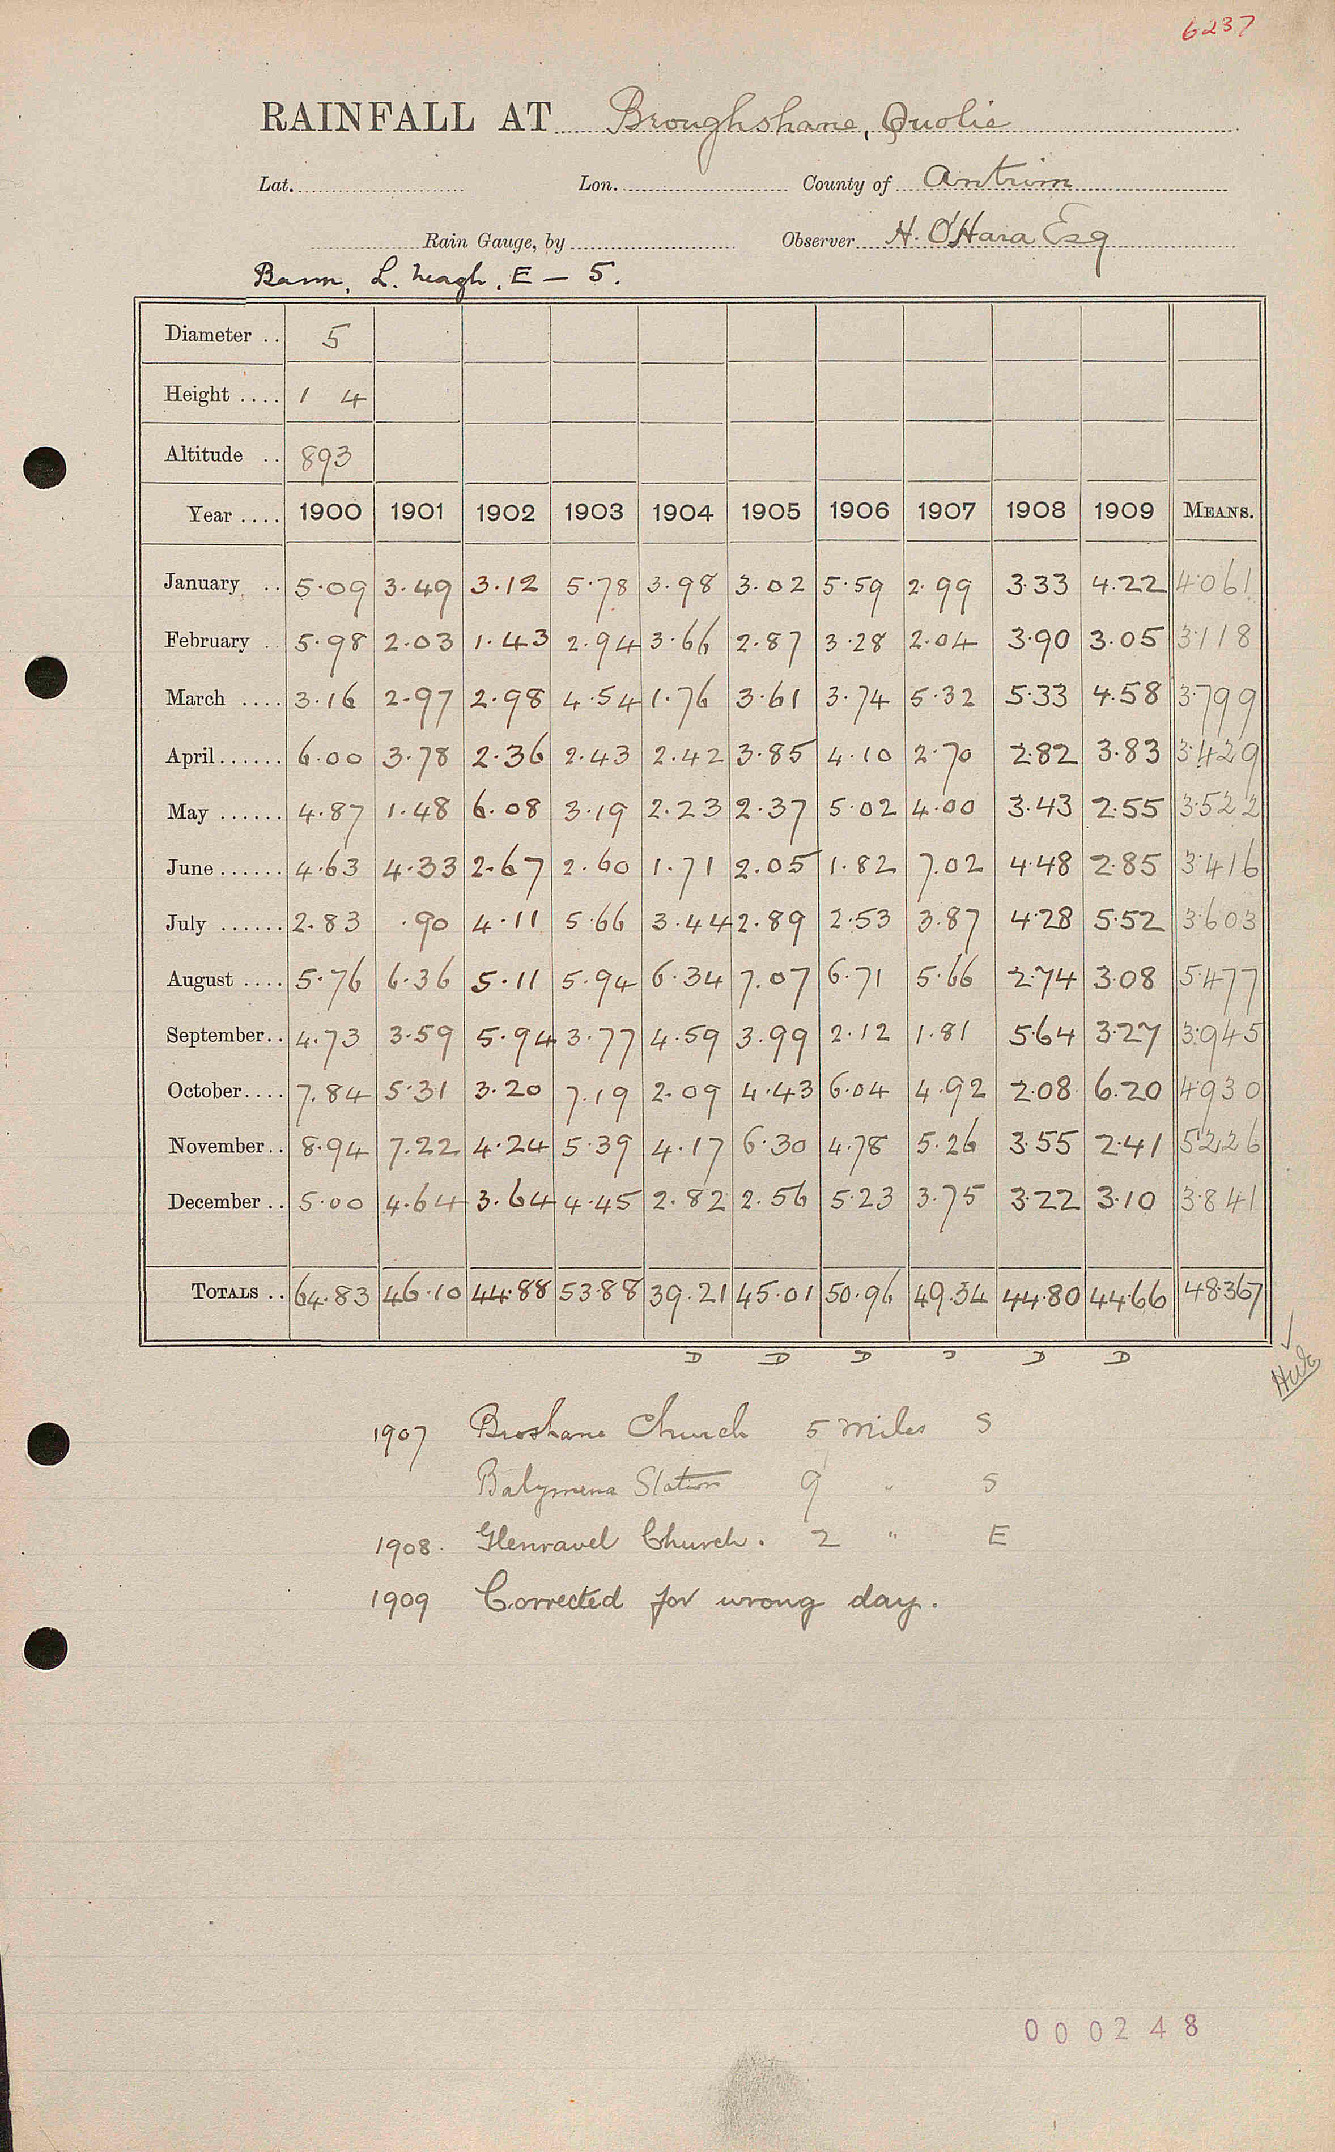 6237
RAINFALL AT Broughshane, Quolie
Lat. Lon. County of Antrim
Rain Gauge, by Observer H. O'Hara Esq
Bann, L. Neagh, E - 5.
Diameter .. 5
Height .... 1 4
Altitude .. 893
Year .... 1900 1901 1902 1903 1904 1905 1906 1907 1908 1909 MEANS.
January .. 5.09 3.49 3.12 5.78 3.98 3.02 5.59 2.99 3.33 4.22 4.061
February .. 5.98 2.03 1.43 2.94 3.66 2.87 3.28 2.04 3.90 3.05 3.118
March .... 3.16 2.97 2.98 4.54 1.76 3.61 3.74 5.32 5.33 4.58 3.799
April ...... 6.00 3.78 2.36 2.43 2.42 3.85 4.10 2.70 2.82 3.83 3.429
May ...... 4.87 1.48 6.08 3.19 2.23 2.37 5.02 4.00 3.43 2.55 3.522
June ...... 4.63 4.33 2.67 2.60 1.71 2.05 1.82 7.02 4.48 2.85 3.416
July ...... 2.83 .90 4.11 5.66 3.44 2.89 2.53 3.87 4.28 5.52 3.603
August .... 5.76 6.36 5.11 5.94 6.34 7.07 6.71 5.66 2.74 3.08 5.477
September .. 4.73 3.59 5.94 3.77 4.59 3.99 2.12 1.81 5.64 3.27 3.945
October .... 7.84 5.31 3.20 7.19 2.09 4.43 6.04 4.92 2.08 6.20 4.930
November .. 8.94 7.22 4.24 5.39 4.17 6.30 4.78 5.26 3.55 2.41 5.226
December .. 5.00 4.64 3.64 4.45 2.82 2.56 5.23 3.75 3.22 3.10 3.841
TOTALS .. 64.83 46.10 44.88 53.88 39.21 45.01 50.96 49.34 44.80 44.66 48.367
D D D D D D
1907 Broshane Church 5 miles S
Balymena Station 9 " S
1908. Glenravel Church. 2 " E
1909 Corrected for wrong day.
000248